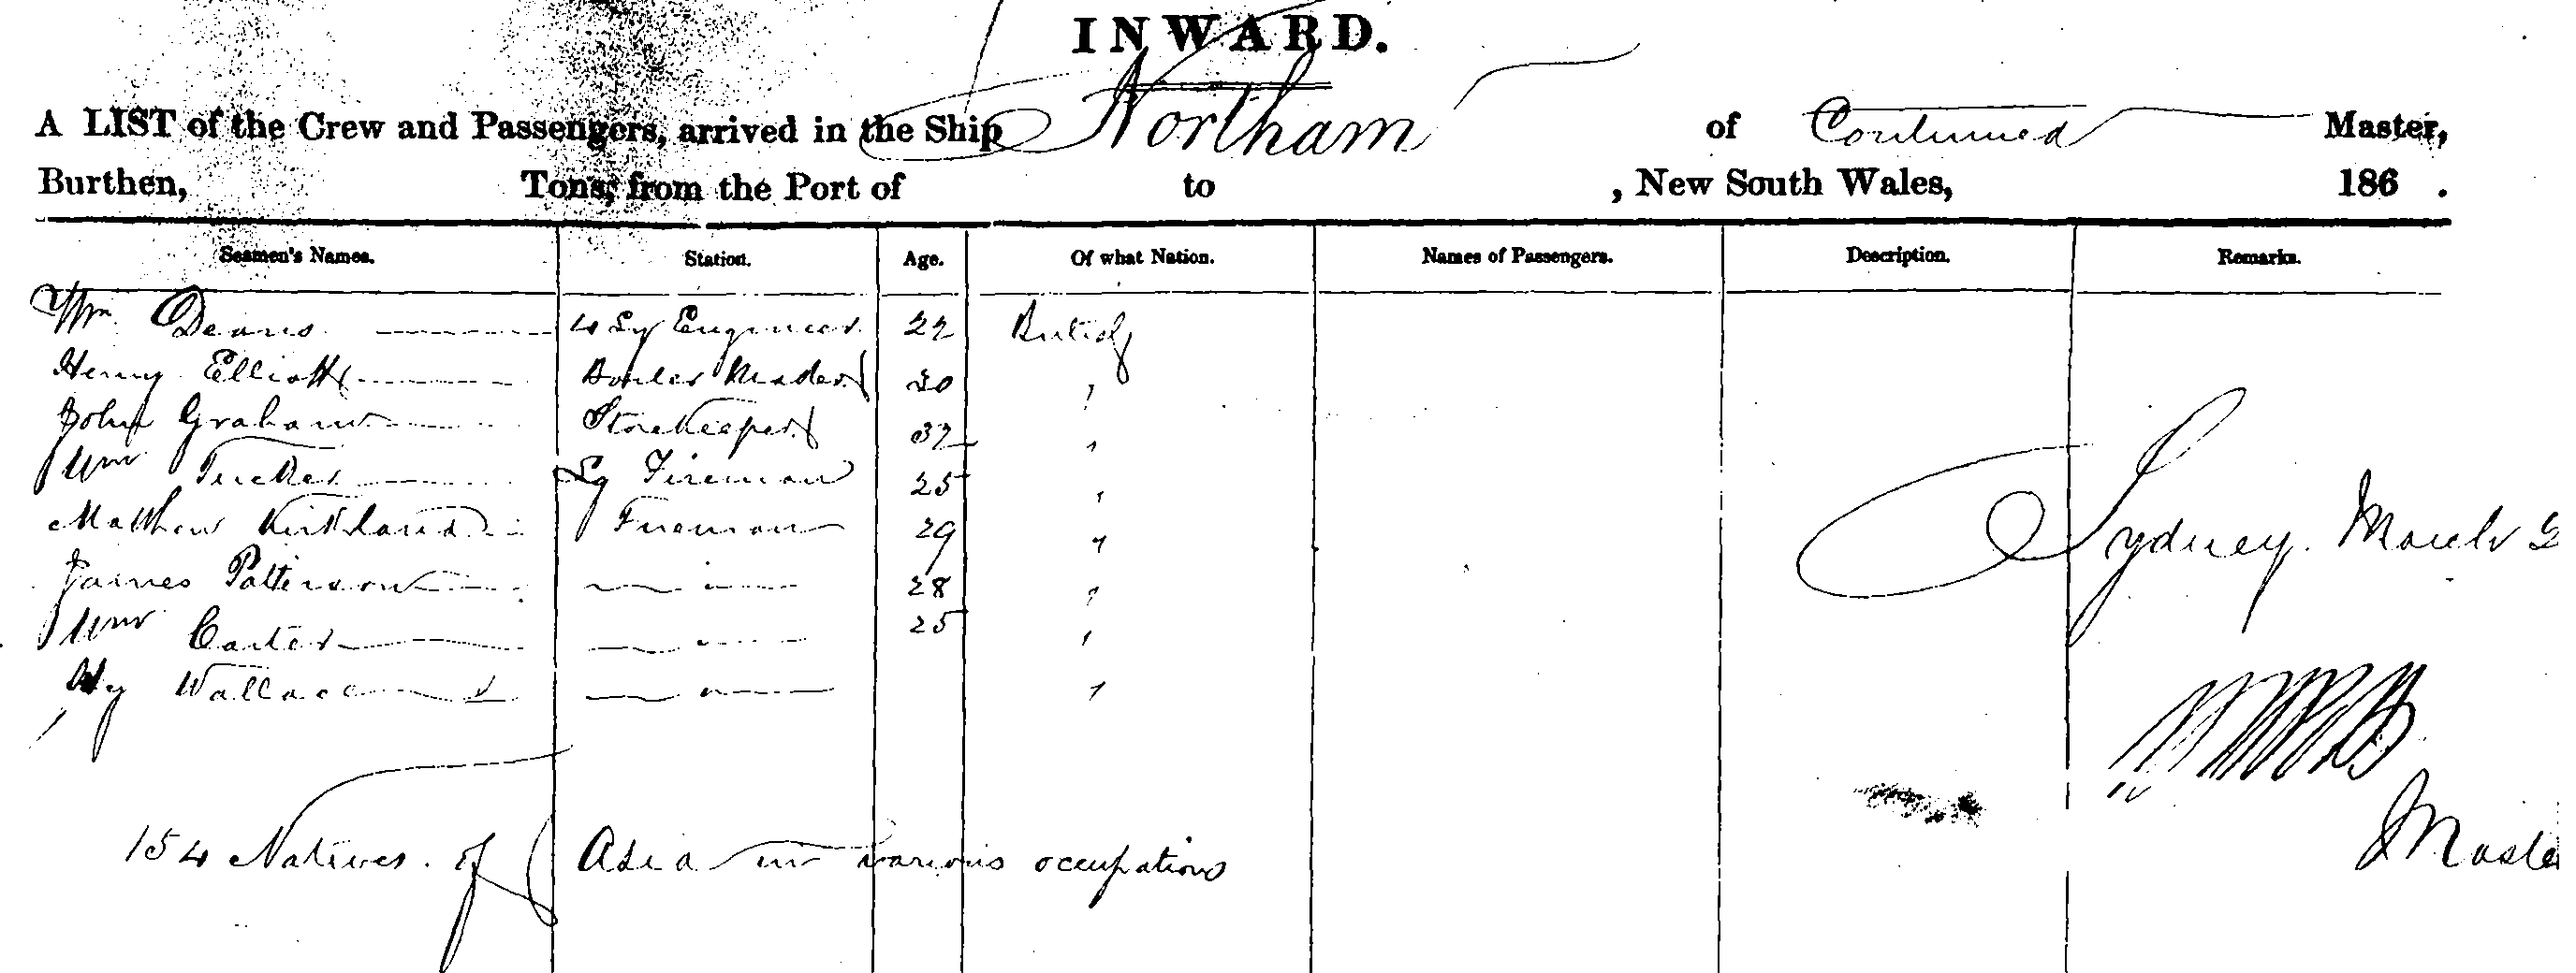 INWARD.
A LIST of the Crew and Passengers, arrived in the Ship Northam of Continued Master,
Burthen, Tons, from the Port of to , New South Wales, 186 .
Seamen's Names. Station. Age. Of what Nation. Names of Passengers. Description. Remarks.
Wm Deans 4 Engineer 22 British
Henry Elliott Boiler Maker 30 "
John Graham Storekeeper 37 "
Wm Tucker Lg Fireman 25 "
Matthew Kirkland Fireman 29 "
James Patterson " 28 "
Wm Carter " 25 "
Hy Wallace " "
Sydney. March
154 Natives of Asia in various occupations
Maste